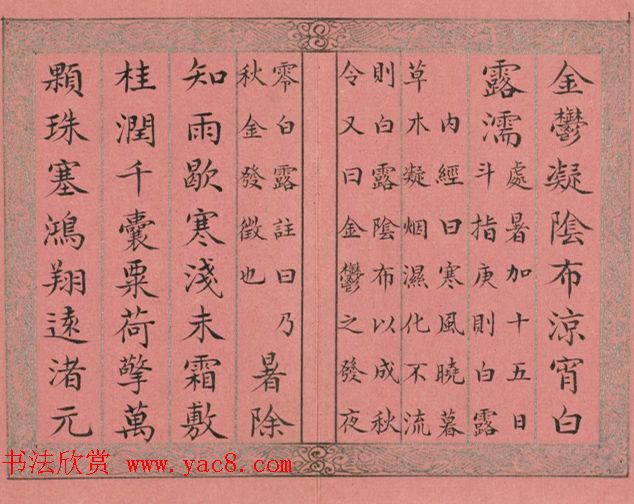 金鬱凝陰布涼宵白
露濡
處暑加十五日
斗指庚則白露
内經曰寒風曉暮
草木凝烟濕化不流
則白露陰布以成秋
令又曰金鬱之發夜
零白露註曰乃
秋金發徵也
暑除
知雨歇寒淺未霜敷
桂潤千囊粟荷擎萬
顆珠塞鴻翔遠渚元
书法欣赏 www.yac8.com